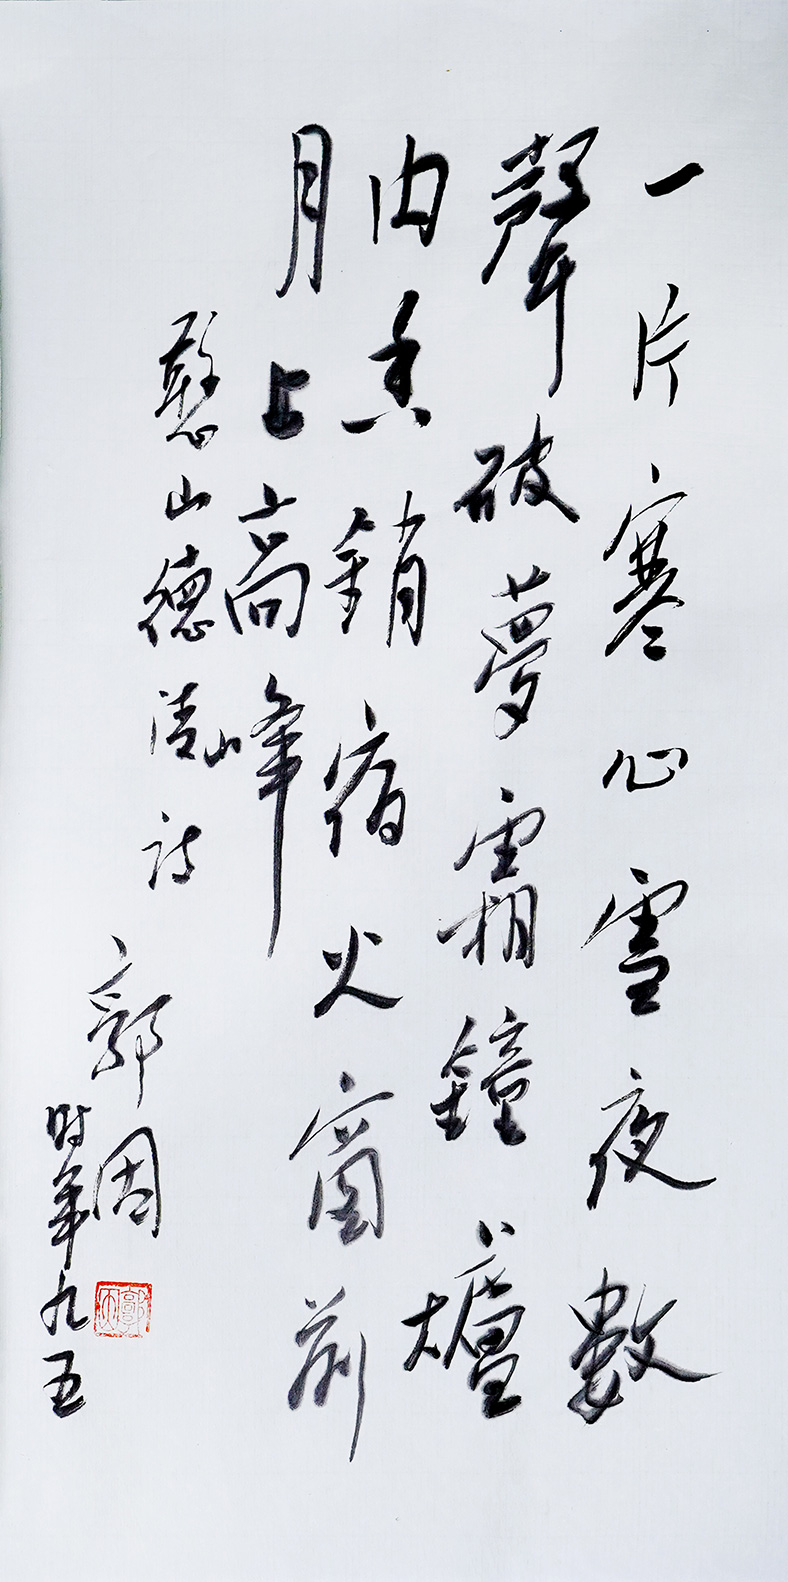 一片寒心雪夜數
聲破夢霜鐘爐
內香銷宿火窗前
月上高峰
憨山德清诗
郭因
时年九五
郭因